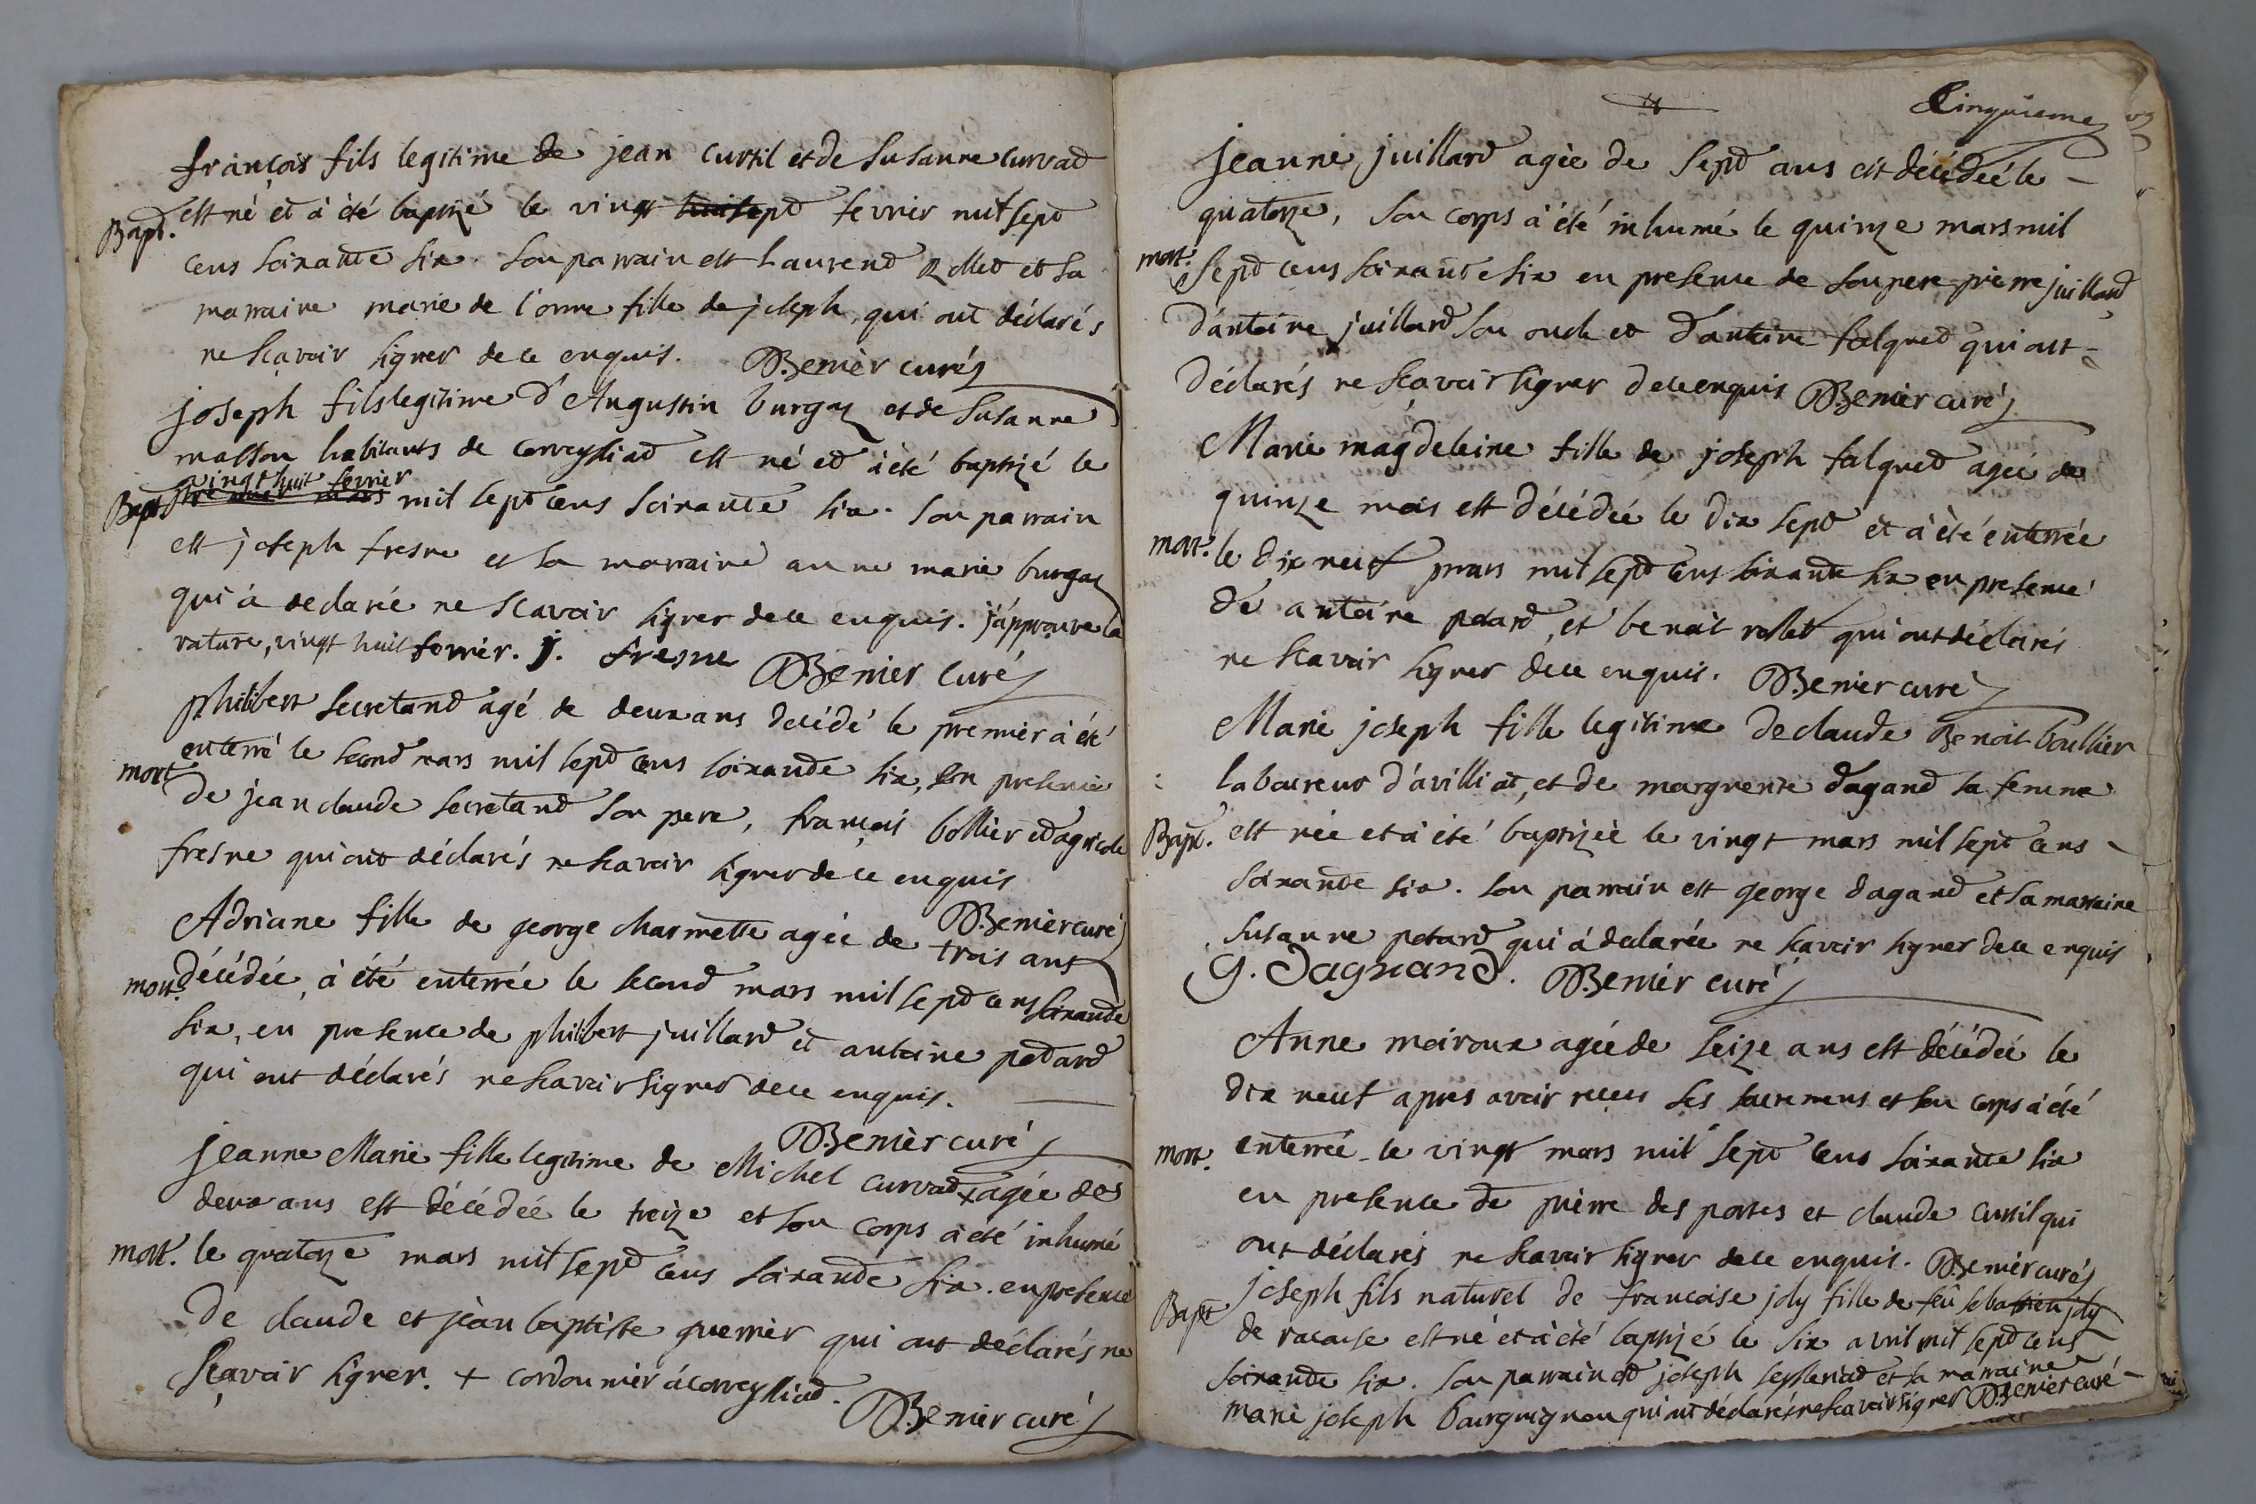 françois fils legitime de jean curtil et de Susanne curvad
Bapt. est né et à été baptizé le vingt sept fevrier mil sept
cens soixante six. son parrain est Laurend Rollet et sa
marraine marie de l'orme fille de joseph, qui ont déclarés
ne sçavoir signer de ce enquis. Benier curé
joseph fils legitime d'Augustin burgaz et de Susanne
masson habitants de corveyssiad est né et à été baptizé le
vingt huit fevrier
Bapt premier mars mil sept cens soixante six. son parrain
est joseph fresne et sa marraine anne marie burgaz
qui à declarée ne scavoir signer de ce enquis. j'approuve la
rature, vingt huit fevrier. J. fresne Benier curé
philibert secretand agé de deux ans decédé le premier à été
enterré le second mars mil sept cens soixande six, en presence
mort de jean claude secretand son pere, françois bollier et agricole
fresne qui ont déclarés ne scavoir signer de ce enquis
Benier curé
Adriane fille de george charmette agée de trois ans
mort. décédée, à été enterrée le second mars mil sept cens soixande
six, en presence de philibert juillard et antoine petard
qui ont déclarés ne scavoir signer de ce enquis.
Benier curé
jeanne Marie fille legitime de Michel curvad + agée de
deux ans est décédée le treize et son corps à été inhumé
mort. le quatorze mars mil sept cens soixande six. en presence
de claude et jean baptiste guerrier qui ont déclarés ne
sçavoir signer. + cordonnier à corveyssiad.
Benier curé
Cinquieme
jeanne juillard agée de sept ans est décédée le
quatorze, son corps à été inhumé le quinze mars mil
mort. sept cens soixante six en presence de son pere pierre juillard
d'antoine juillard son oncle et d'antoine falqued qui ont
déclarés ne sçavoir signer de ce enquis Benier curé
Marie magdeleine fille de joseph falqued agée de
quinze mois est décédée le dix sept et à été enterrée
mor. le dix neuf mars mil sept cens soixante six en presence
de antoine petard, et benoit rollet qui ont déclarés
ne scavoir signer de ce enquis. Benier curé
Marie joseph fille legitime de claude Benoit boullier
laboureur d'avilliat, et de marguerite dagand sa femme
Bapt. est née et à été baptizée le vingt mars mil sept cens
soixante six. son parrain est george dagand et sa marraine
susanne petard qui à declarée ne sçavoir signer de ce enquis
G. Dagnand. Benier curé
Anne moiroux agée de seize ans est décédée le
dix neuf apres avoir receu ses sacremens et son corps à été
mort. enterrée le vingt mars mil sept cens soixante six
en presence de pierre des portes et claude curtil qui
ont déclarés ne scavoir signer de ce enquis. Benier curé
Bapt joseph fils naturel de francoise joly fille de feu sebastien joly
de racouse est né et à été baptizé le six avril mil sept cens
soixande six. son parrain est joseph et sa marraine
marie joseph bourguignon qui ont déclarés ne scavoir signer Benier curé